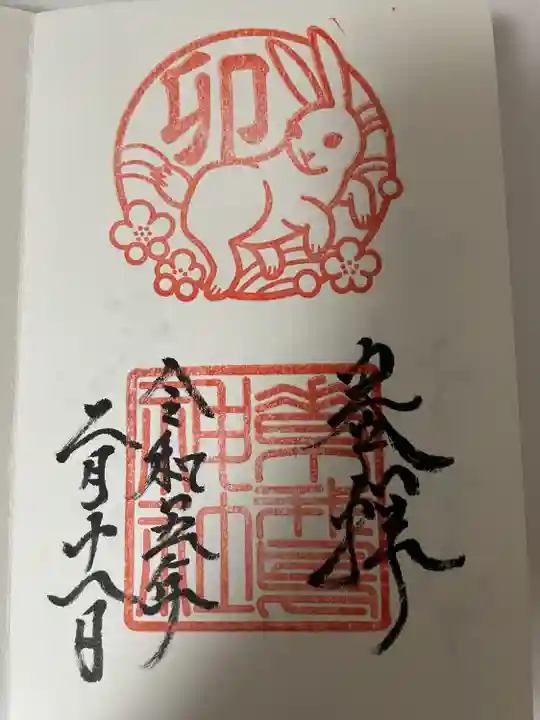 卯
奉拝
神社
令和五年
二月十八日